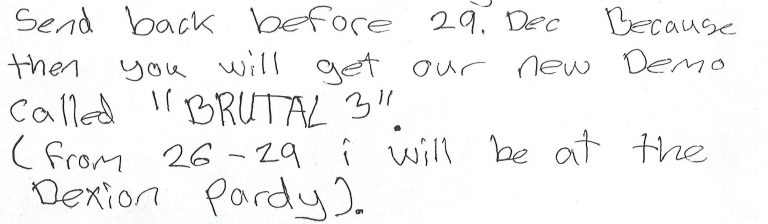 Send back before 29. Dec Because
then you will get our new Demo
Called "BRUTAL 3".
(from 26-29 i will be at the
Dexion pardy).